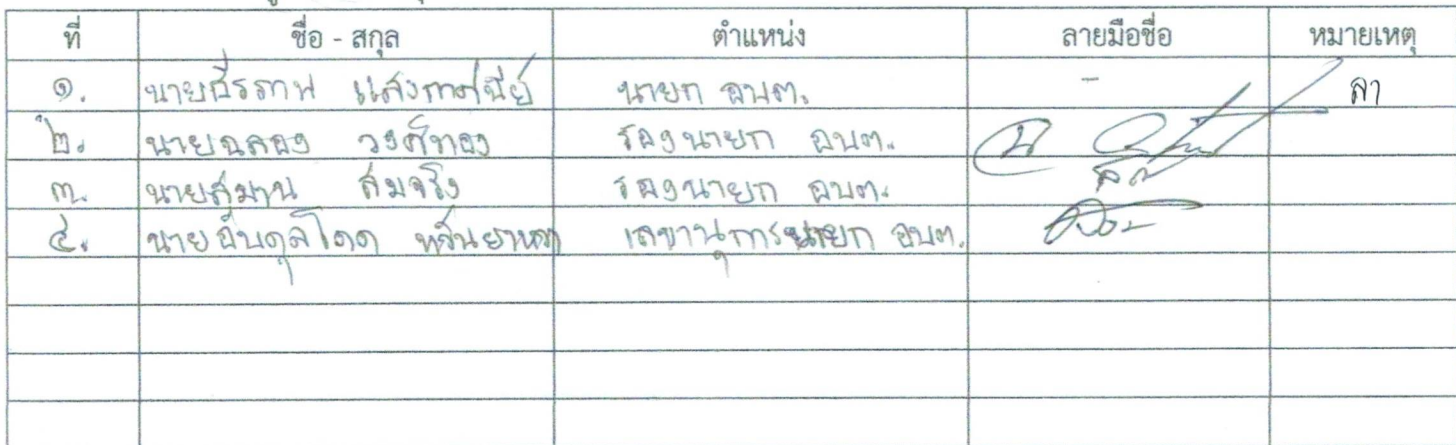 ที่ ชื่อ - สกุล ตำแหน่ง ลายมือชื่อ หมายเหตุ
๑. นายธีรราพ แสงกาศนีย์ นายก อบต. - ลา
๒. นายฉลอง วงศ์ทอง รองนายก อบต.
๓. นายสมาน สมจริง รองนายก อบต.
๔. นายอับดุลโดด เลขานุการนายก อบต.